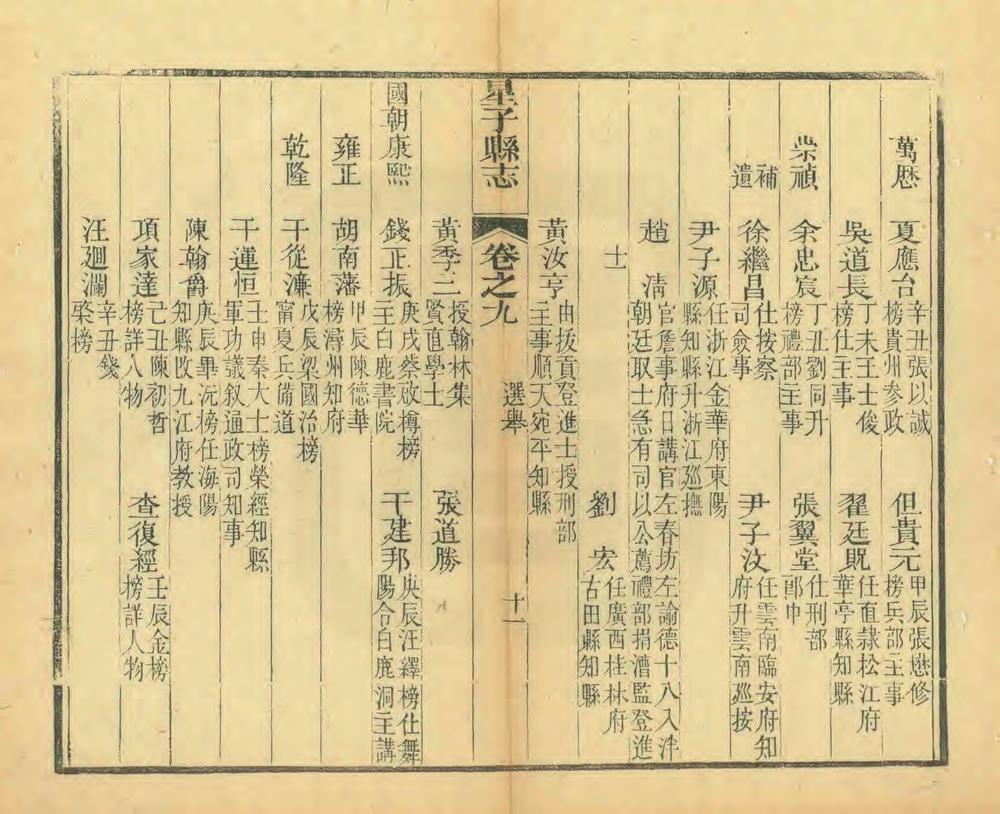 萬厯 夏應台 辛丑張以誠榜貴州參政 但貴元 甲辰張懋修榜兵部主事
吳道長 丁未王士俊榜仕主事 翟廷貺 任直隸松江府華亭縣知縣
崇禎 余忠宸 丁丑劉同升榜禮部主事 張翼堂 仕刑部郎中
補遺 徐繼昌 仕按察司僉事 尹子汶 任雲南臨安府知府升雲南廵按
尹子源 任浙江金華府東陽縣知縣升浙江廵撫
趙淸 官詹事府日講官左春坊左諭德十八入泮朝廷取士急有司以公薦禮部捐漕監登進
士 劉宏 任廣西桂林府古田縣知縣
黃汝亨 由拔貢登進士授刑部主事順天宛平知縣
星子縣志 卷之九 選舉 十一
黃季三 授翰林集賢直學士 張道勝
國朝康熙 錢正振 庚戌蔡啟樽榜主白鹿書院 干建邦 庚辰汪繹榜仕舞陽令白鹿洞主講
雍正 胡南藩 甲辰陳德華榜潯州知府
乾隆 干從濂 戊辰梁國治榜甯夏兵備道
干運恒 壬申秦大士榜榮經知縣軍功議敘通政司知事
陳翰爵 庚辰畢沅榜任海陽知縣改九江府教授
項家達 己丑陳初哲榜詳人物 查復經 壬辰金榜榜詳人物
汪廻瀾 辛丑錢棨榜